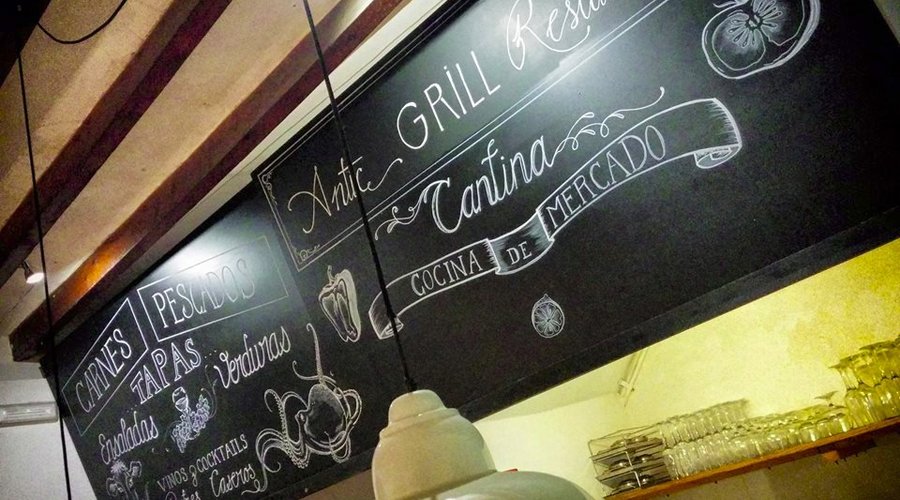 Antic GRILL
Cantina
COCINA DE MERCADO
CARNES
PESCADOS
TAPAS
Verduras
Ensaladas
VINOS y COCKTAILS
Caseros